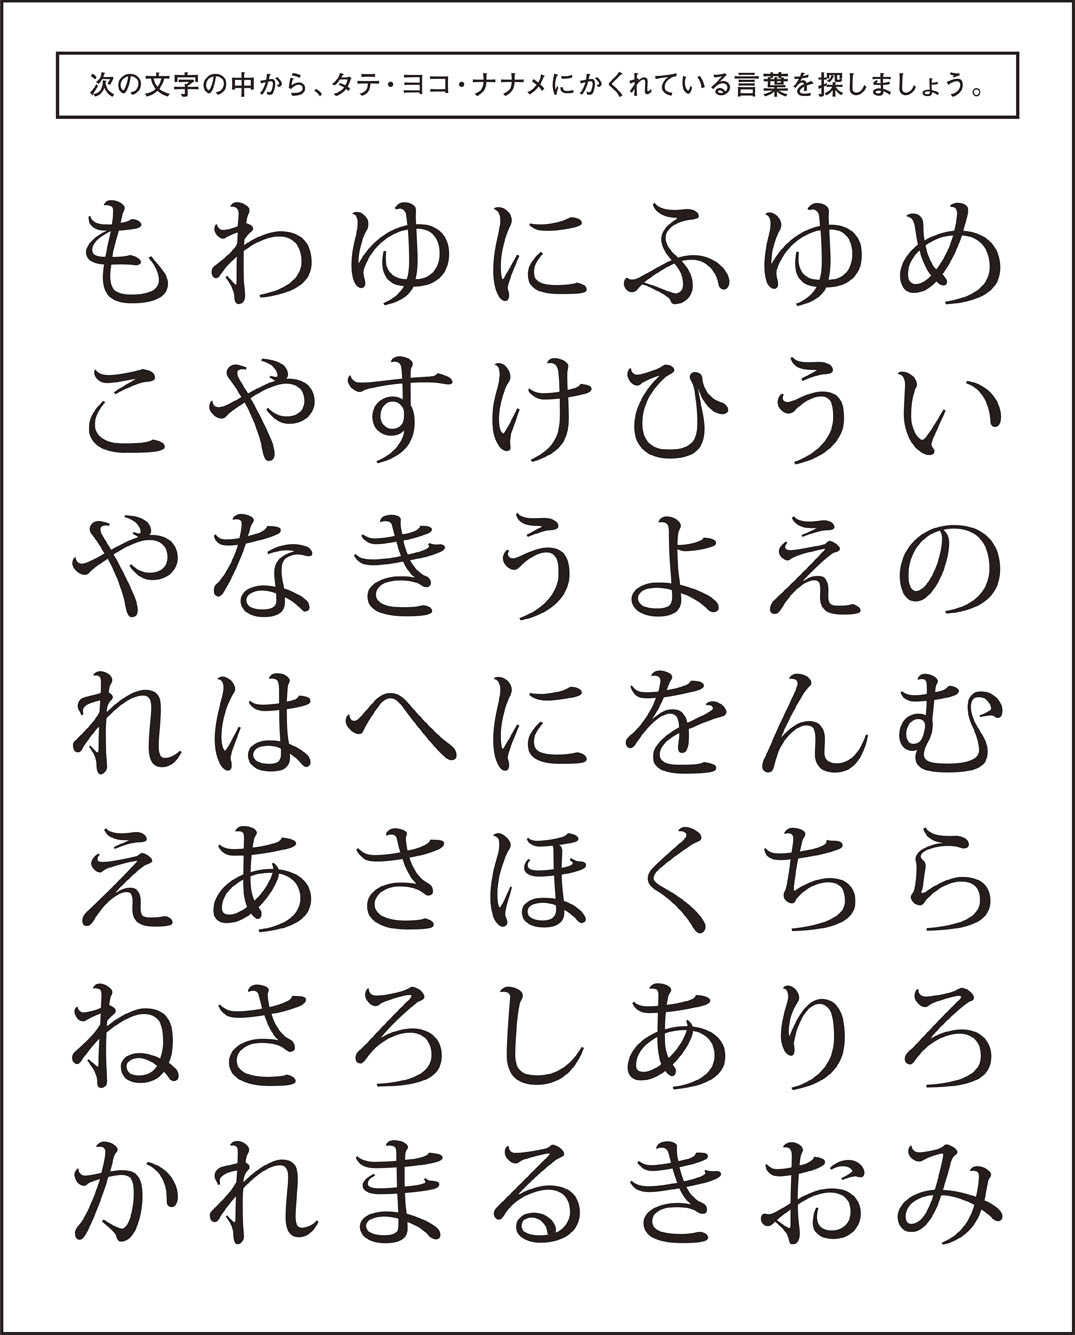 次の文字の中から、タテ・ヨコ・ナナメにかくれている言葉を探しましょう。
もわゆにふゆめ
こやすけひうい
やなきうよえの
れはへにをんむ
えあさほくちら
ねさろしありろ
かれまるきおみ